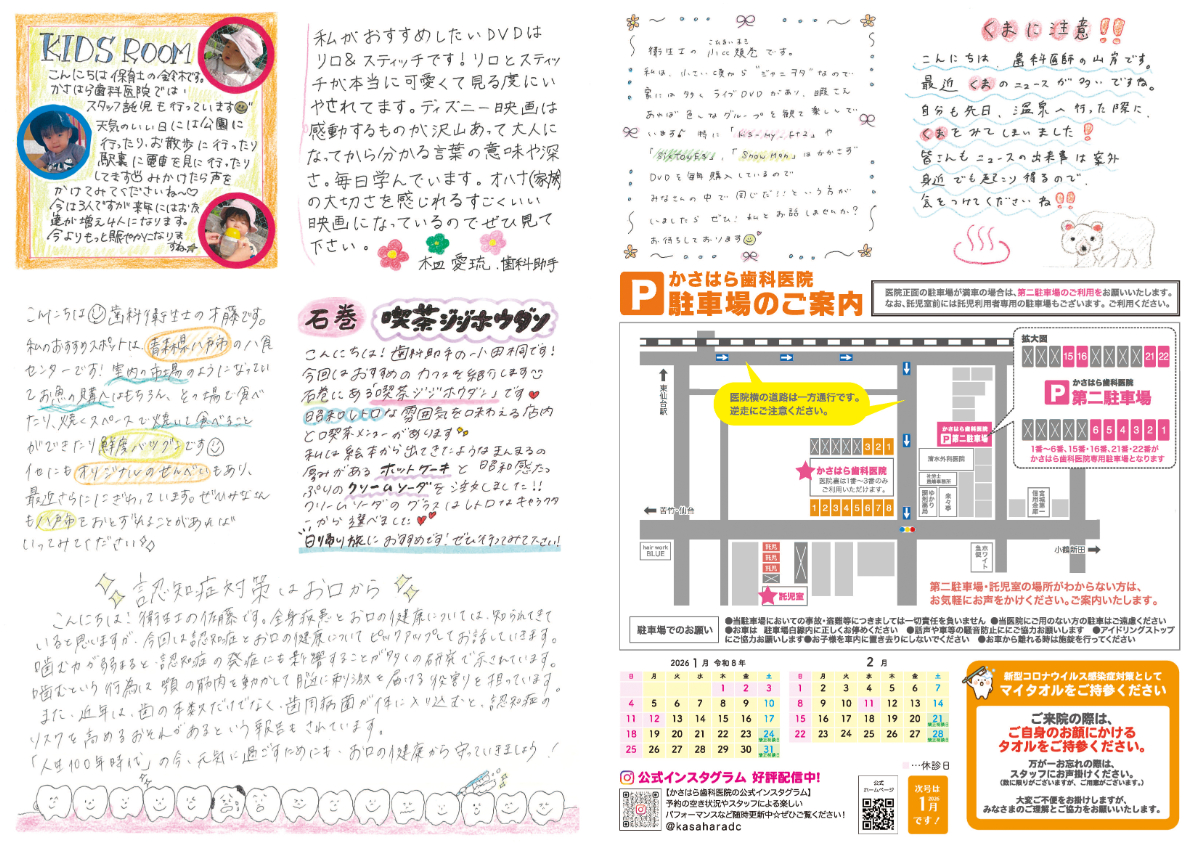 KIDS ROOM
こんにちは 保育士の鈴木です。
かさはら歯科医院では、
スタッフ託児も行っています
天気のいい日には公園に
行ったり、お散歩に行ったり
駅裏に電車を見に行ったり
してます みかけたら声を
かけてみてくださいね〜♡
今は3人ですが来年にはお友
達が増え4人になります。
今よりもっと賑やかになりま
すね☆
私がおすすめしたいDVDは
リロ&スティッチです！リロとスティッ
チが本当に可愛くて見る度にい
やされてます。ディズニー映画は
感動するものが沢山あって大人に
なってから分かる言葉の意味や深
さ。毎日学んでいます。オハナ(家族)
の大切さを感じれるすごくいい
映画になっているのでぜひ見て
下さい。
愛琉．歯科助手
こんにちは 歯科衛生士の木藤です。
私のおすすめスポットは、青森県八戸市の八食
センターです！室内の市場のようになってい
てお魚の購入はもちろん、その場で食べ
たり、焼くスペースで焼いて食べること
ができたり鮮度バツグンです
他にもオリジナルのせんべいもあり、
最近さらににぎわっています。ぜひみなさん
も八戸市をおとずれることがあれば
いってみてください
石巻 喫茶ジジホウダン
こんにちは！歯科助手の小田桐です！
今回はおすすめのカフェを紹介します
石巻にある喫茶ジジホウダンです♥
昭和レトロな雰囲気を味わえる店内
と喫茶メニューがあります
私は絵本から出てきたようなまんまるの
厚みがあるホットケーキと昭和感たっ
ぷりのクリームソーダを注文しました!!
クリームソーダのグラスはレトロなキャラクタ
ーから選べました♥♥
日帰り旅におすすめです！ぜひ行ってみてください！
認知症対策はお口から
こんにちは！衛生士の佐藤です。全身疾患とお口の健康については、知られてきて
いると思いますが、今回は認知症とお口の健康についてピックアップしてお話していきます。
噛む力が弱まると、認知症の発症にも影響することが多くの研究で示されています。
噛むという行為は、顎の筋肉を動かして脳に刺激を届ける役割を担っています。
また、近年は、歯の本数だけでなく、歯周病菌が体に入り込むと、認知症の
リスクを高めるおそれがあるという報告もされています。
「人生100年時代」の今、元気に過ごすためにも、お口の健康から守っていきましょう！
衛生士の 小比類巻です。
私は、小さい頃から"ジャニヲタ"なので
家には多くライブDVDがあり、暇さえ
あれば色んなグループを観て楽しんで
います 特に「Kis-My-Ft2」や
「SixTONES」、「Snow Man」はかかさず
DVDを毎年購入しているので
みなさんの中で同じだ！という方が
いましたら ぜひ！私とお話しませんか？
お待ちしております
くまに注意!!
こんにちは、歯科医師の山岸です。
最近 くまのニュースが多いですね。
自分も先日、温泉へ行った際に
くまをみてしまいました！
皆さんもニュースの出来事は案外
身近でも起こり得るので、
気をつけてくださいね!!
P かさはら歯科医院
駐車場のご案内
医院正面の駐車場が満車の場合は、第二駐車場のご利用をお願いいたします。
なお、託児室前には託児利用者専用の駐車場もございます。ご利用ください。
東仙台駅
医院横の道路は一方通行です。
逆走にご注意ください。
3 2 1
かさはら歯科医院
医院裏は1番〜3番のみ
ご利用いただけます。
1 2 3 4 5 6 7 8
苦竹・仙台
かさはら歯科医院
P 第二駐車場
清水外科医院
ゆかり調剤薬局
拡大図
15 16 21 22
かさはら歯科医院
P 第二駐車場
6 5 4 3 2 1
1番〜6番、15番・16番、21番・22番が
かさはら歯科医院専用駐車場となります
hair work
BLUE
託児
託児
託児
託児室
小鶴新田
第二駐車場・託児室の場所がわからない方は、
お気軽にお声をかけください。ご案内いたします。
駐車場でのお願い
●当駐車場においての事故・盗難等につきましては一切責任を負いません ●当医院にご用のない方の駐車はご遠慮ください
●お車は 駐車場白線内に正しくお停めください ●話声や車等の騒音防止にご協力お願いします ●アイドリングストップ
にご協力お願いします●お子様を車内に置き去りにしないでください ●お車から離れる時は施錠を行ってください
2026 1月 令和8年
日 月 火 水 木 金 土
1 2 3
4 5 6 7 8 9 10
11 12 13 14 15 16 17
18 19 20 21 22 23 24
25 26 27 28 29 30 31
2月
日 月 火 水 木 金 土
1 2 3 4 5 6 7
8 9 10 11 12 13 14
15 16 17 18 19 20 21
22 23 24 25 26 27 28
…休診日
公式インスタグラム 好評配信中!
【かさはら歯科医院の公式インスタグラム】
予約の空き状況やスタッフによる楽しい
パフォーマンスなど随時更新中☆ぜひご覧ください！
@kasaharadc
公式
ホームページ
次号は
2026
1月
です！
新型コロナウイルス感染症対策として
マイタオルをご持参ください
ご来院の際は、
ご自身のお顔にかける
タオルをご持参ください。
万が一お忘れの際は、
スタッフにお声掛けください。
(数に限りがございますが、ご用意がございます。)
大変ご不便をお掛けしますが、
みなさまのご理解とご協力をお願いいたします。